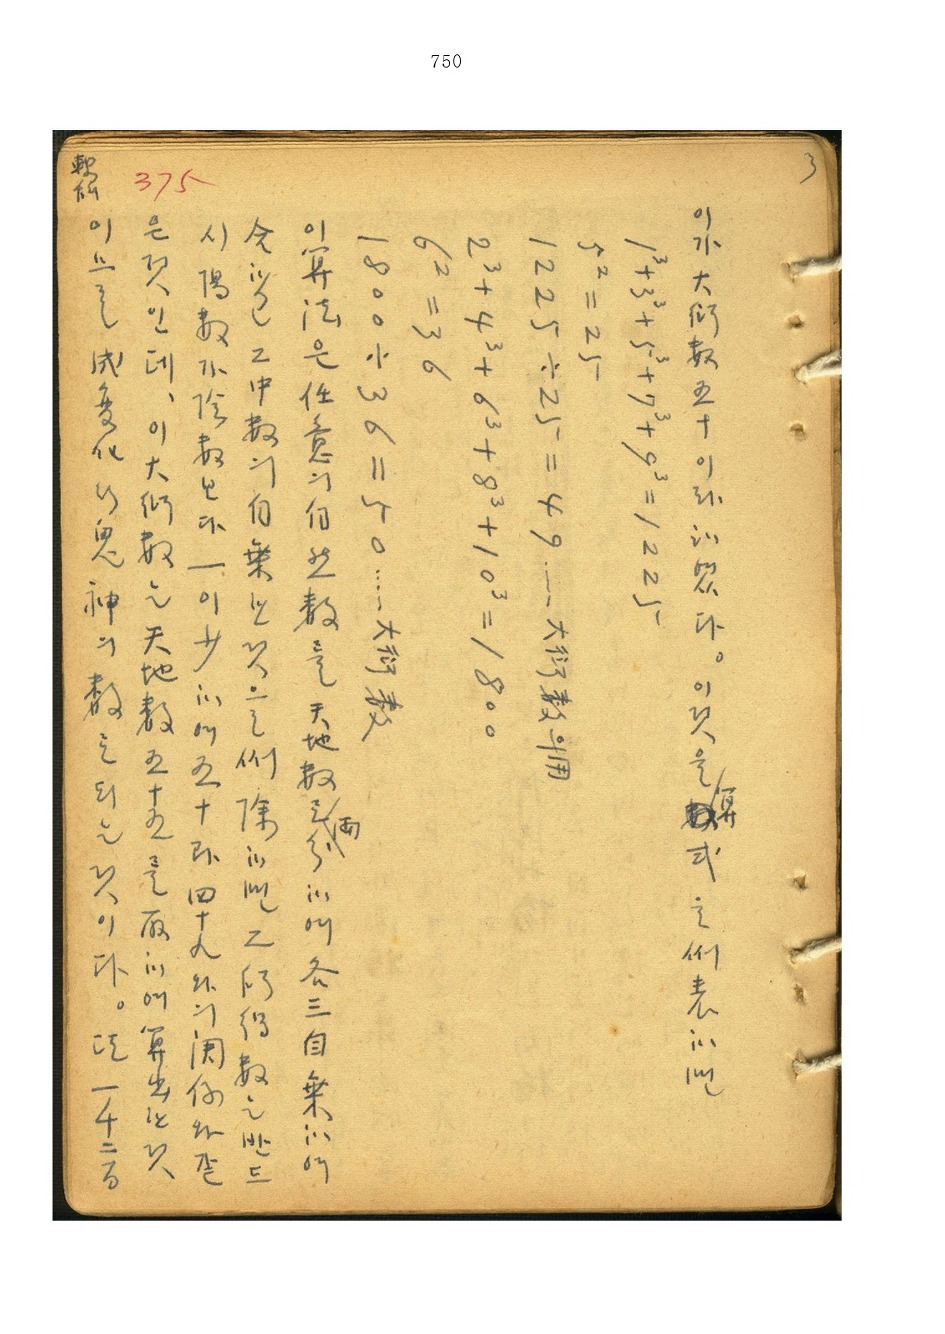 750
3
이가 大衍數五十이라 하였다。 이것을 算式으로 例表하면
1³+3³+5³+7³+9³=1225
5²=25
1225÷25=49……大衍數引用
2³+4³+6³+8³+10³=1800
6²=36
1800÷36=50……大衍數
이 算法은 任意의 自然數를 天地數로 兩分하여 各三自乘하여
合하고 그 中數의 自乘한 것으로 例 除하면 그 所得數는 반드
시 陽數가 陰數보다 一이 少하여 五十과 四十九와의 関係와 같
은 것인데、 이 大衍數는 天地數五十五를 取하여 算出한 것
이므로 成変化 行鬼神의 數를 되는 것이다。 또 一千二百
375